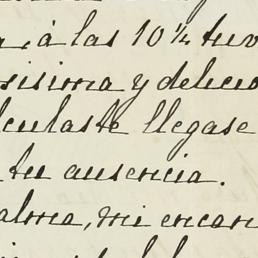 á las 10¼ tuv
isima y delicio
culaste llegase
tu ausencia.
alma, mi encan